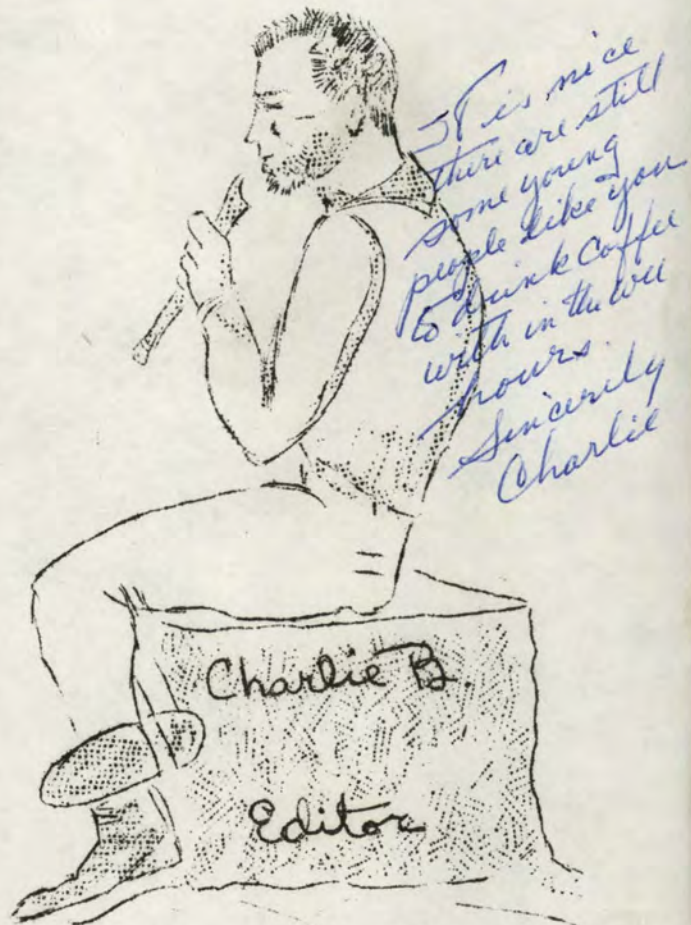 It is nice
there are still
some young
people like you
to drink Coffee
with in the wee
hours.
Sincerely
Charlie
Charlie B.
Editor